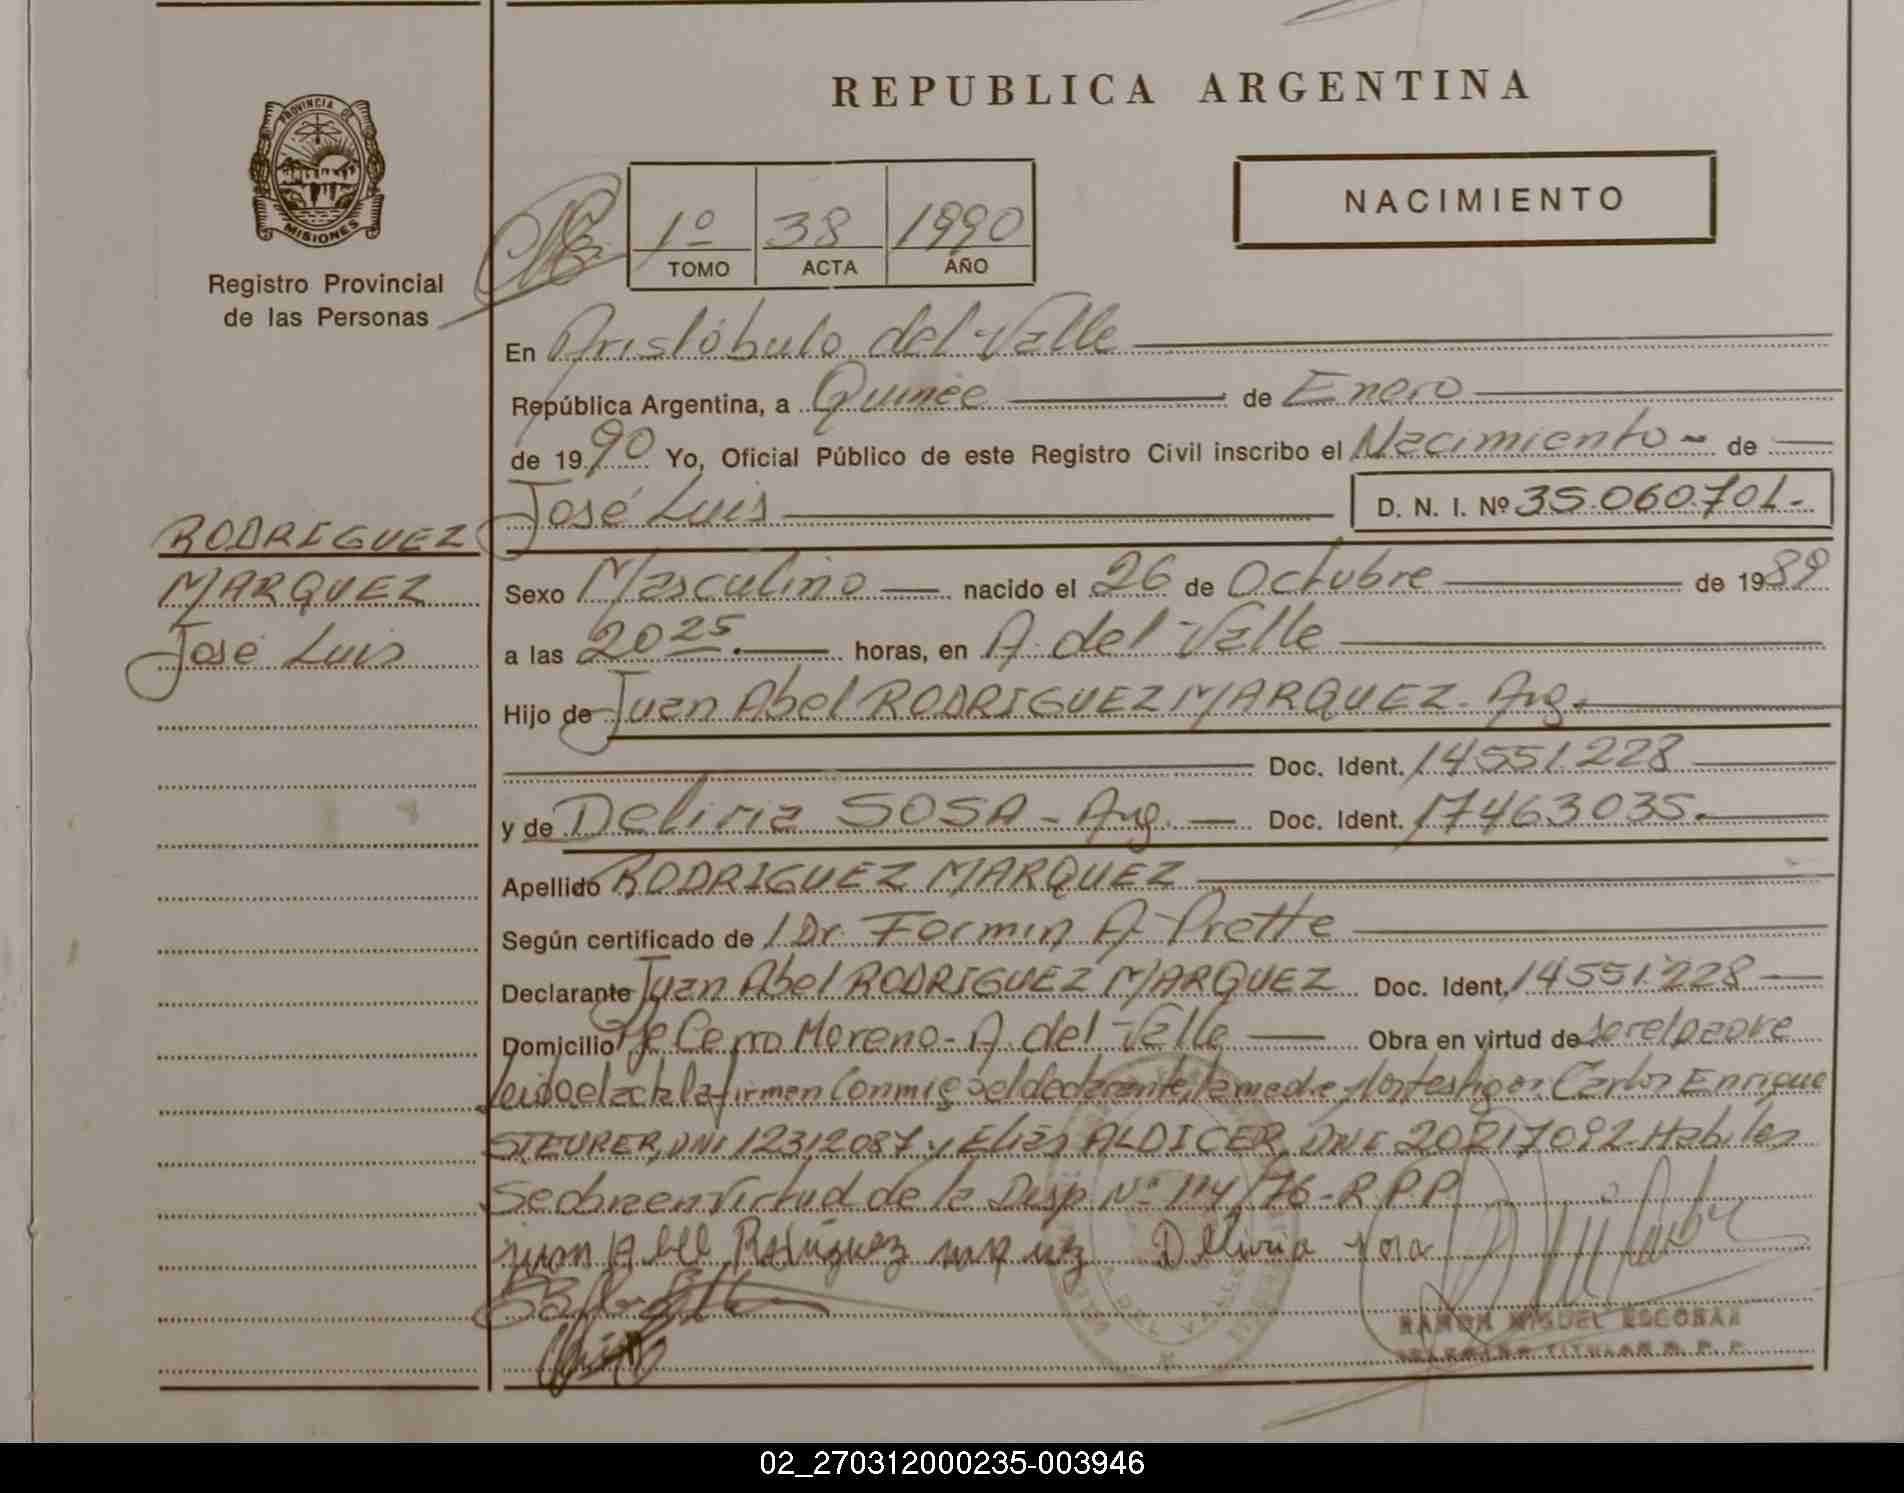 REPUBLICA ARGENTINA
PROVINCIA DE
MISIONES
Registro Provincial
de las Personas
NACIMIENTO
1º 38 1990
TOMO ACTA AÑO
En Aristóbulo del Valle
República Argentina, a Quince de Enero
de 1990 Yo, Oficial Público de este Registro Civil inscribo el Nacimiento de
José Luis D. N. I. Nº 35.060.701.-
RODRIGUEZ
MARQUEZ
José Luis
Sexo Masculino nacido el 26 de Octubre de 1989
a las 20 25. horas, en A. del Valle
Hijo de Juan Abel RODRIGUEZ MARQUEZ. Arg.
Doc. Ident. 14551.228
y de Deliria SOSA - Arg. Doc. Ident. 17463035.
Apellido RODRIGUEZ MARQUEZ
Según certificado de 1 Dr. Formin A. Prette
Declarante Juan Abel RODRIGUEZ MARQUEZ Doc. Ident. 14551.228
Domicilio Cerro Moreno - A. del Valle Obra en virtud de ser el padre
leido el acta la firmen conmigo el declarante, la madre y los testigos Carlos Enrique
STEURER, DNI 12312087 y Elías ALDICER, DNI 20217092. Habiles
Se obra en virtud de la Disp. Nº 114/76 - R.P.P.
Juan Abel Rodriguez
RAMON MIGUEL ESCOBAR
TITULAR R. P. P.
02_270312000235-003946